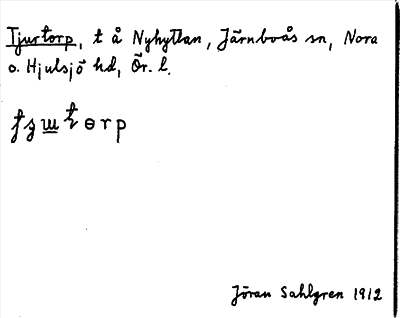 Tjurtorp, t å Nyhyttan, Järnboås sn, Nora
o. Hjulsjö hd, Ör. l.
Jöran Sahlgren 1912